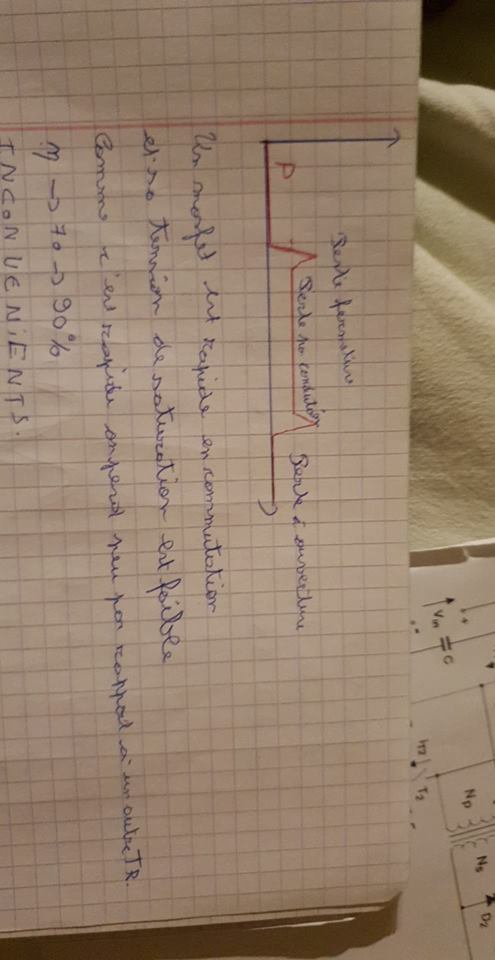 Perte fermeture
P
Perte en conduction
Perte à ouverture
Un mosfet est rapide en commutation
et sa tension de saturation est faible
Comme c'est rapide on perd peu par rapport à un autre TR.
η → 70 → 90%
INCONVENIENTS.
Vin
C
H2
T2
Np
Ns
D2